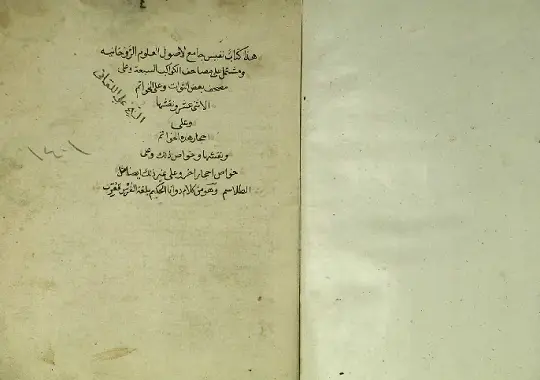 ٤
هذا كتاب نفيس جامع لاصول العلوم الروحانيه
ومشتمل على مصاحف الكواكب السبعة وعلى
مصحف بعض اخوات وعلى الخواتم
الاثنى عشر ونقشها
وعلى
حجار هذه الخواتم
ونقشها وخواص ذلك وعلى
خواص احجار اخر وعلى غير ذلك ايضا من
الطلاسم وهو من كلام دوانا الحكيم بلغة الفرس فعرب
الشيخ علي
١٤٠١